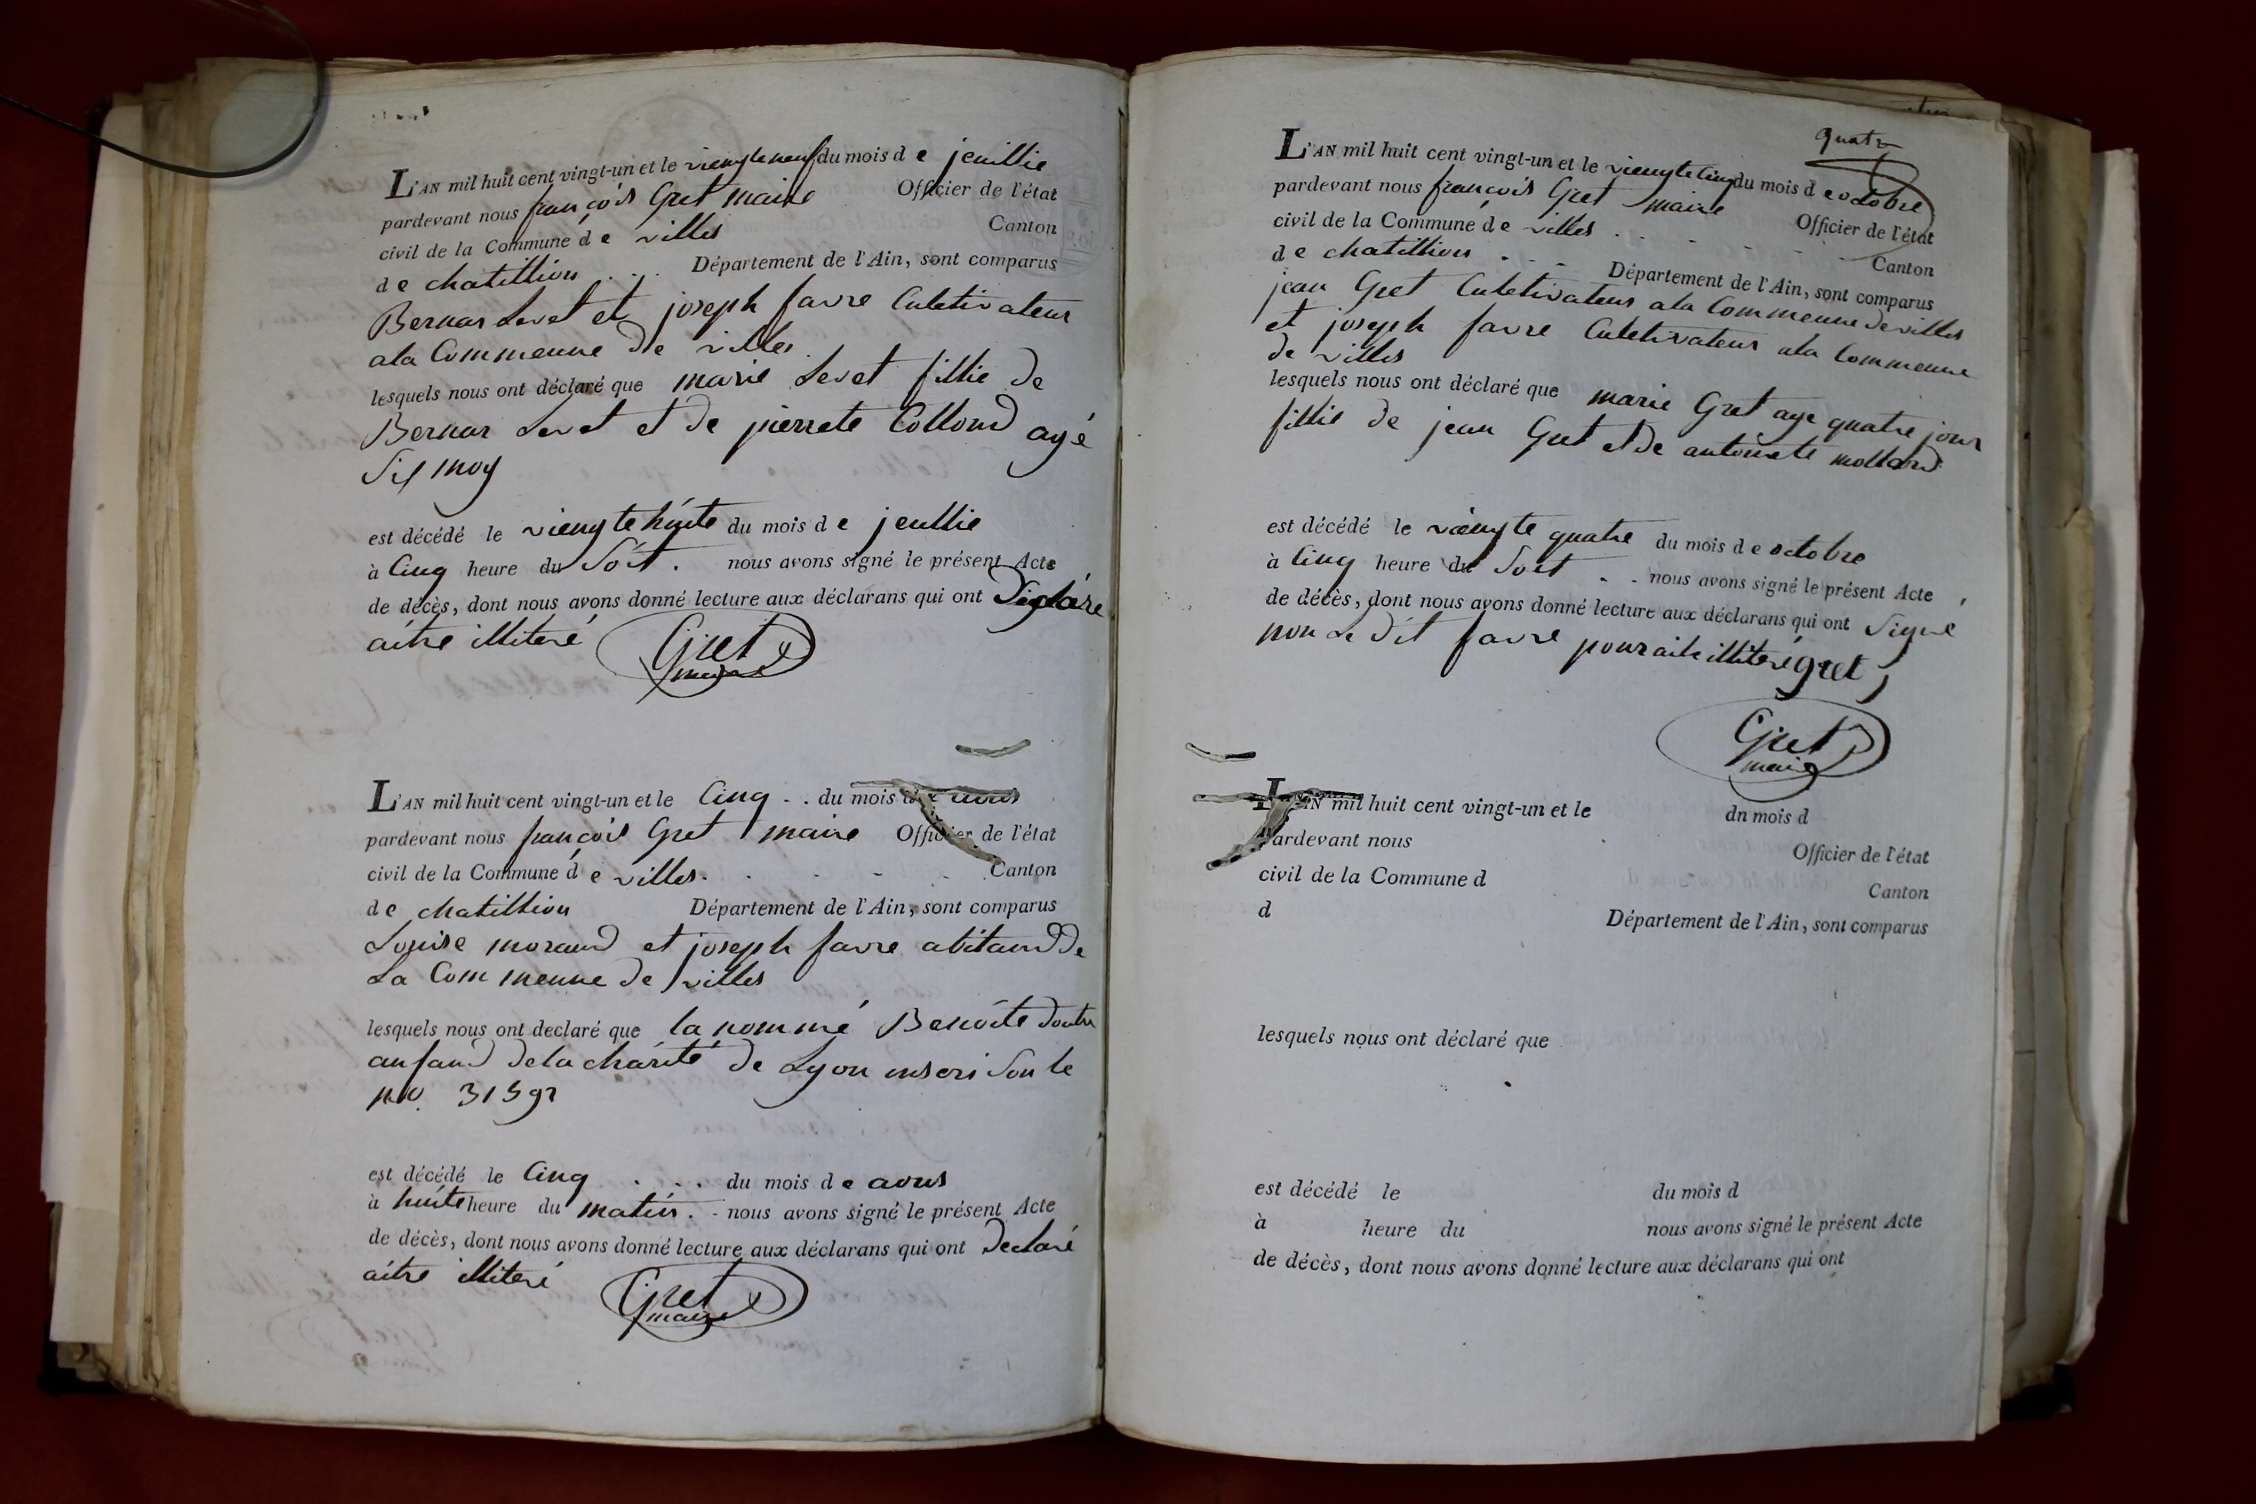 L'AN mil huit cent vingt-un et le viengte neuf du mois de jeuillie
pardevant nous françois Gret maire Officier de l'état
civil de la Commune de villes Canton
de chatillion . . . Département de l'Ain, sont comparus
Bernar Levet et joseph favre Culetivateur
ala Commeune de villes
lesquels nous ont déclaré que marie Levet fillie de
Bernar Levet et de pierrete Collond agé
Six moy
est décédé le viengte huite du mois de jeullie
à Cinq heure du Soit . nous avons signé le présent Acte
de décès, dont nous avons donné lecture aux déclarans qui ont
aitre illiteré Gret
maire
L'AN mil huit cent vingt-un et le Cinq . . du mois de aous
pardevant nous françois Gret maire Officier de l'état
civil de la Commune de villes . . . . Canton
de chatillion Département de l'Ain, sont comparus
Louise moraud et joseph favre abitand de
La Commeune de villes
lesquels nous ont declaré que la nommé Benoite
anfand de la charité de Lyon inscri Sou le
no. 31592
est décédé le Cinq . . . . du mois de aous
à huite heure du matin . - nous avons signé le présent Acte
de décès, dont nous avons donné lecture aux déclarans qui ont declaré
aitre illiteré Gret
maire
quatr
L'AN mil huit cent vingt-un et le viengte Cinq du mois de octobre
pardevant nous françois Gret maire Officier de l'état
civil de la Commune de villes . - - - - Canton
de chatillion . - - Département de l'Ain, sont comparus
jean Gret Culetivateur ala Commeune de villes
et joseph favre Culetivateur ala Commeune
de villes
lesquels nous ont déclaré que marie Gret age quatre jour
fillie de jean Gret et de antoinete mollard
est décédé le viengte quatre du mois de octobre
à Cinq heure du Soit . - nous avons signé le présent Acte
de décès, dont nous avons donné lecture aux déclarans qui ont Signé
non Le dit favre pour aitre illiteré Gret
Gret
maire
L'AN mil huit cent vingt-un et le dn mois d
pardevant nous Officier de l'état
civil de la Commune d Canton
d Département de l'Ain, sont comparus
lesquels nous ont déclaré que
est décédé le du mois d
à heure du nous avons signé le présent Acte
de décès, dont nous avons donné lecture aux déclarans qui ont